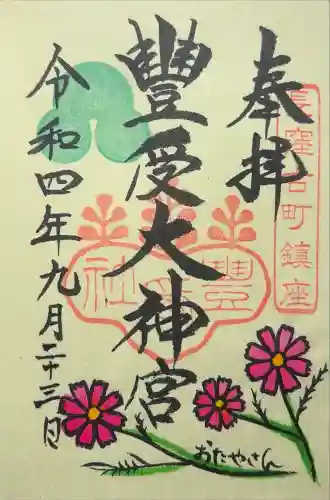 奉拝
豊受大神宮
令和四年九月二十三日
長窪古町鎮座
豊受社
おたやさん